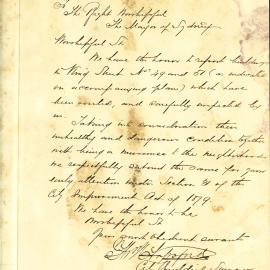 To The Right Worshipful
The Mayor of Sydney
Worshipful Sir
We have the honor to report buildings
in King Street Nos 49 and 51 (as indicated
on accompanying plan) which have
been visited, and carefully inspected by
us.
Taking into consideration their
unhealthy and dangerous condition together
with being a nuisance to the neighborhood
we respectfully submit the same for your
early attention under Section 31 of the
City Improvement Act of 1879.
We have the honor to be
Worshipful Sir
Your most obedient servants
City Building Surveyor